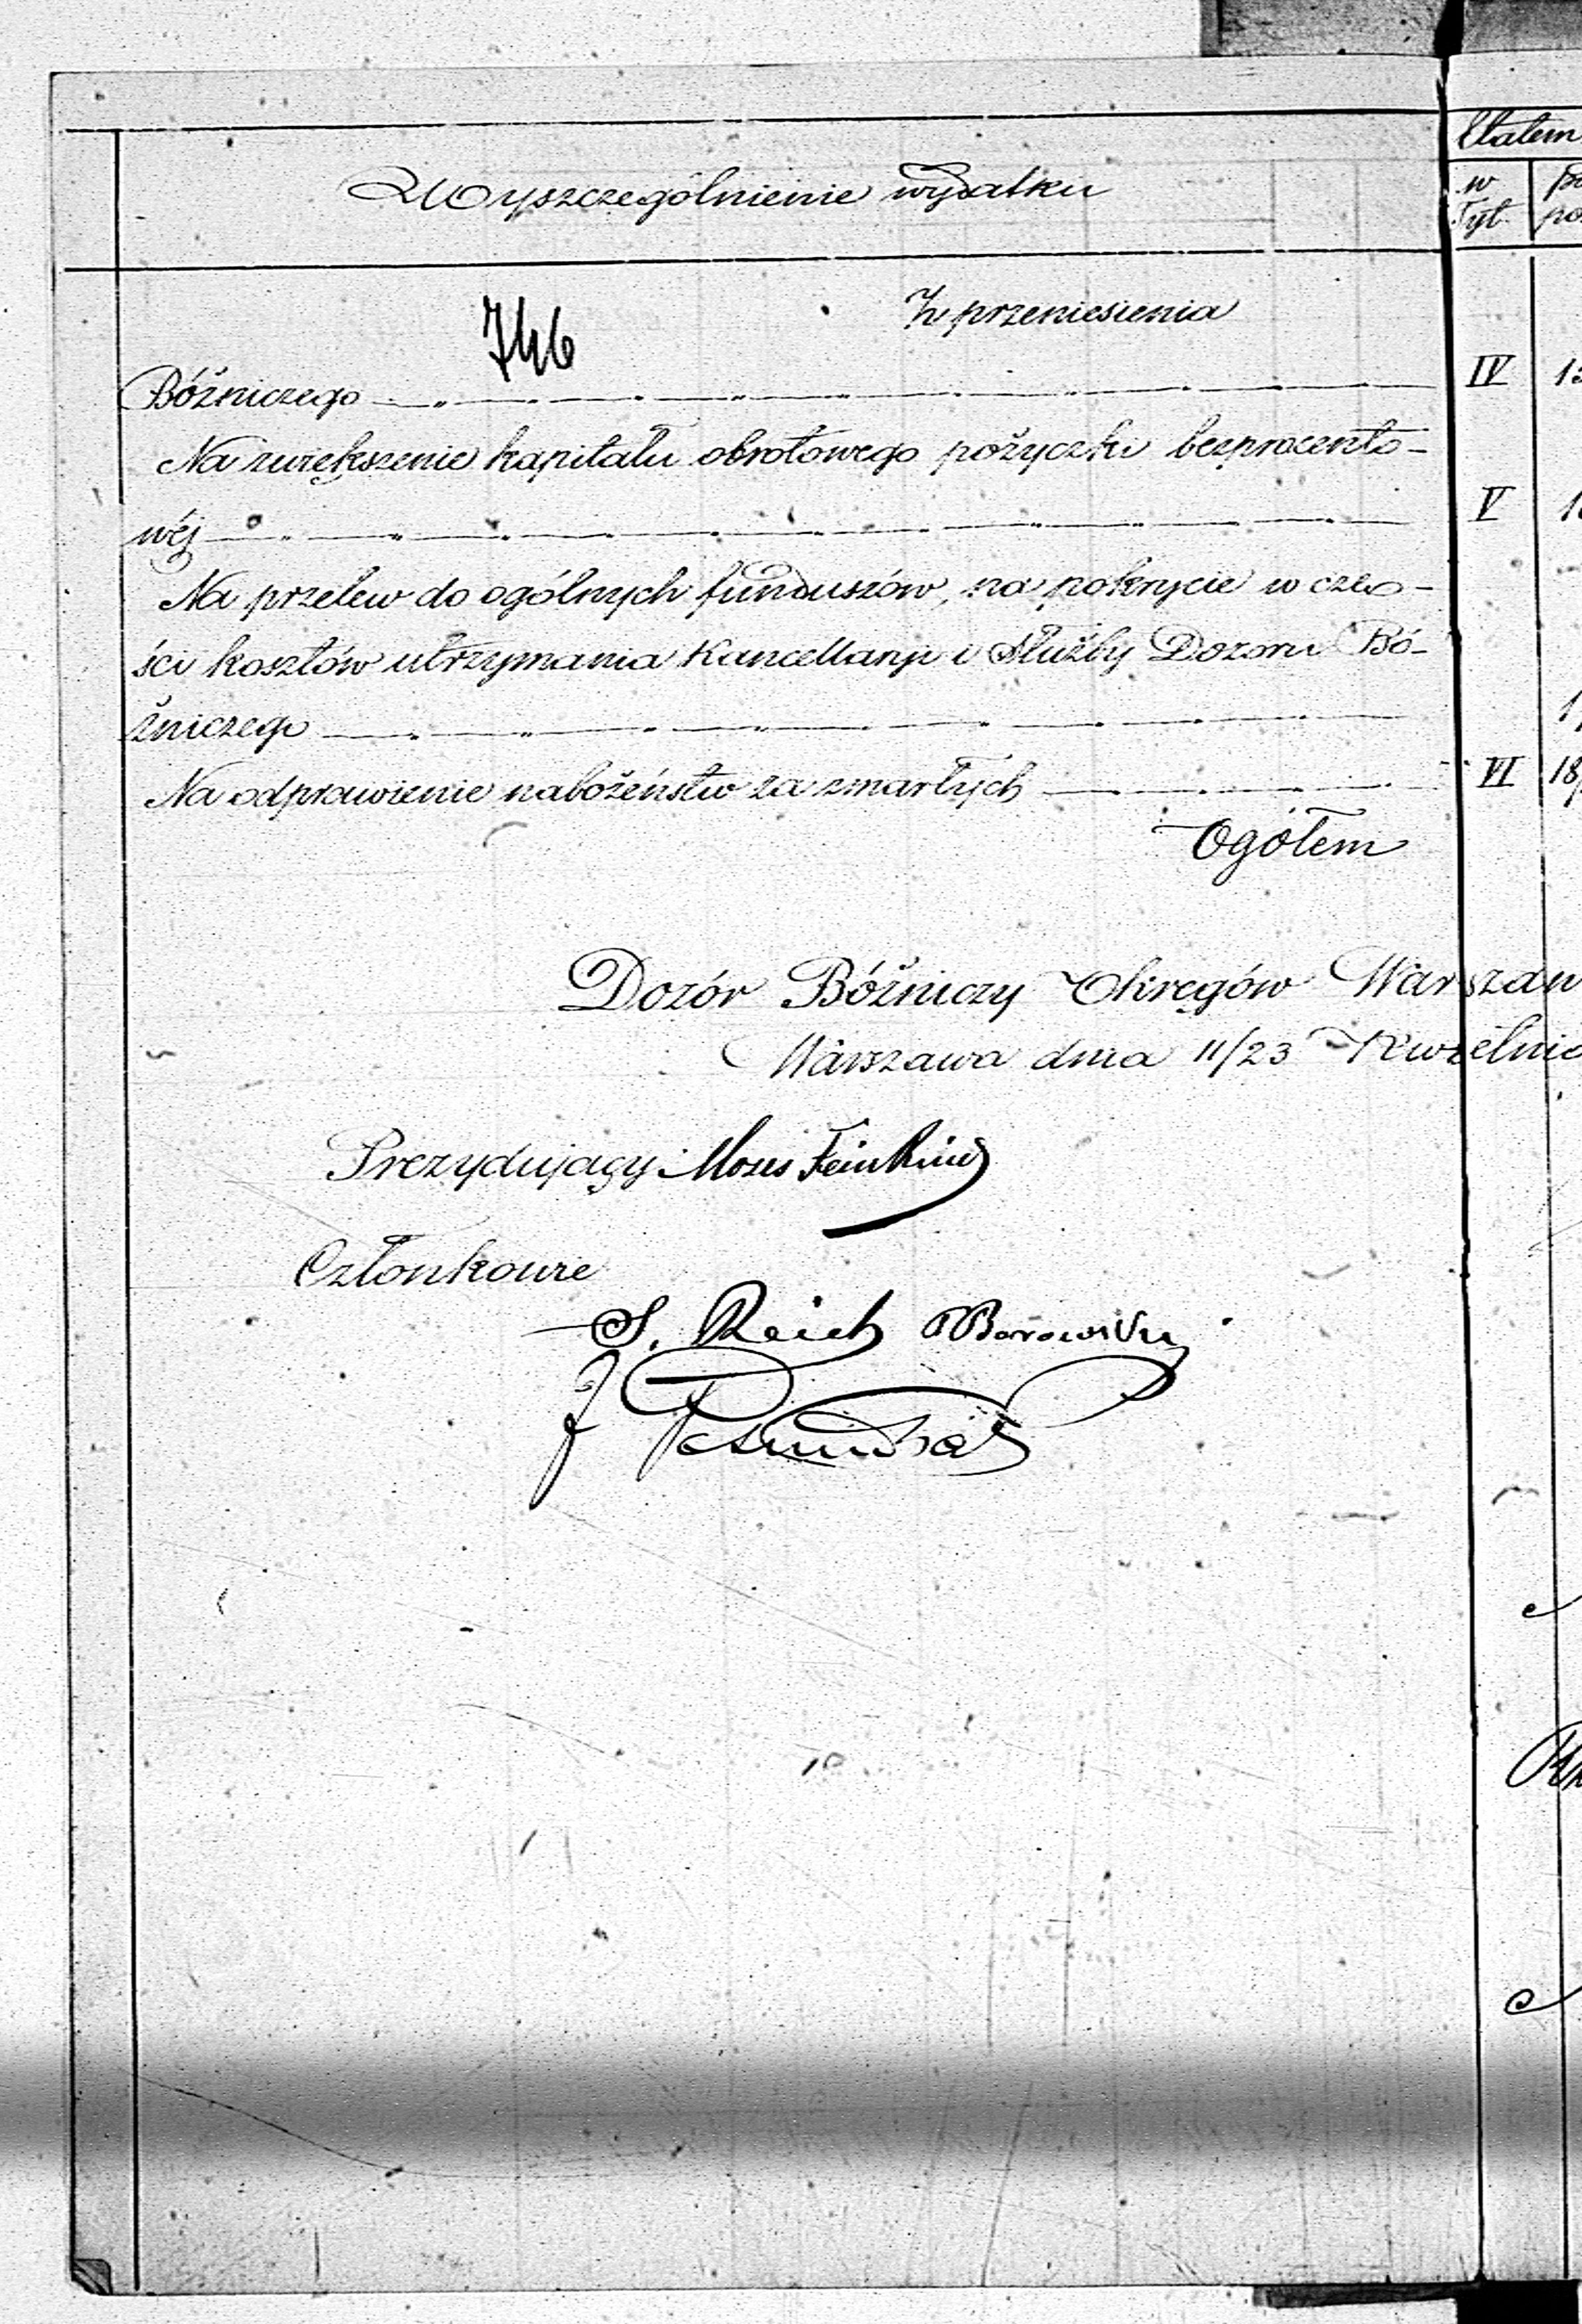 Etatem
Wyszczególnienie wydatku
w
Tyt.
Z przeniesienia
746
Bóźniczego IV
Na zwiększenie kapitału obrotowego pożyczki bezprocento-
wéj V
Na przelew do ogólnych funduszów, na pokrycie w czę-
ści kosztów utrzymania Kancellaryi i Służby Dozoru Bó-
źniczego
Na odprawienie nabożeństw za zmarłych VI 18
Ogółem
Dozór Bóźniczy Okręgów Warszaw
Warszawa dnia 11/23 Kwietnia
Prezydujący Moses Feinkind
Członkowie
S. Reich Borowski
J